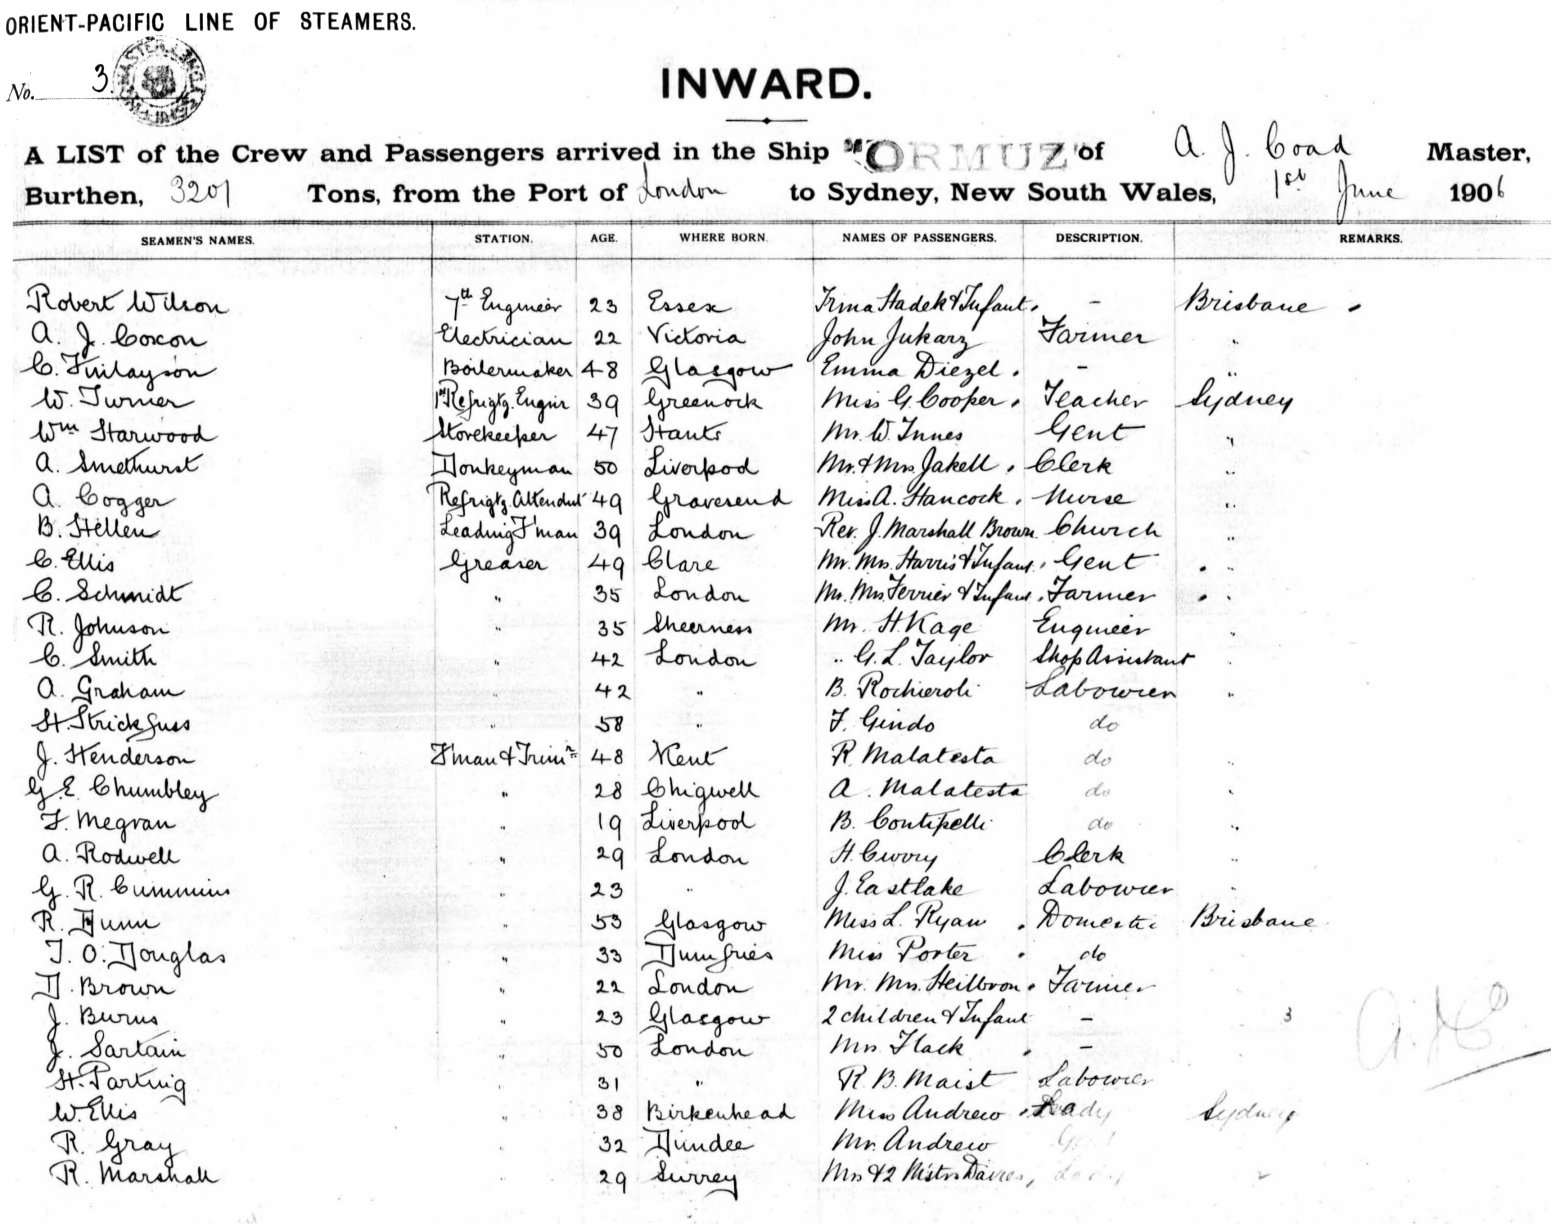 ORIENT-PACIFIC LINE OF STEAMERS.
No. 3.
INWARD.
A LIST of the Crew and Passengers arrived in the Ship "ORMUZ" of A. J. Coad Master,
Burthen, 3201 Tons, from the Port of London to Sydney, New South Wales, 1st June 1906
SEAMEN'S NAMES. STATION. AGE. WHERE BORN. NAMES OF PASSENGERS. DESCRIPTION. REMARKS.
Robert Wilson 7th Engineer 23 Essex Irma Hadek & Infant. - Brisbane
A. J. Coxon Electrician 22 Victoria John Jukarz Farmer "
C. Finlayson Boilermaker 48 Glasgow Emma Diezel. - "
W. Turner 1st Refrigtg. Enginr 39 Greenock Miss G. Cooper. Teacher Sydney
Wm Harwood Storekeeper 47 Hants Mr. W. Innes Gent "
A. Smethurst Donkeyman 50 Liverpool Mr. & Mrs Jakell. Clerk "
A. Cogger Refrigtg. Attendnt 49 Gravesend Miss A. Hancock. Nurse "
B. Hellen Leading F'man 39 London Rev. J. Marshall Brown. Church "
C. Ellis Greaser 49 Clare Mr. Mrs. Harris & Infant. Gent "
C. Schmidt " 35 London Mr. Mrs Ferrier & Infant. Farmer "
R. Johnson " 35 Sheerness Mr. H. Kage Engineer "
C. Smith " 42 London " G. L. Taylor Shop Assistant "
A. Graham " 42 " B. Rochieroli Labourer "
H. Strickfuss " 58 " F. Gindo do
J. Henderson F'man & Trimr 48 Kent R. Malatesta do "
G. E. Chumbley " 28 Chigwell A. Malatesta do "
F. Megran " 19 Liverpool B. Contipelli do "
A. Rodwell " 29 London H. Cwory Clerk "
G. R. Cummins " 23 " J. Eastlake Labourer "
R. Dunn " 53 Glasgow Miss L. Ryan . Domestic Brisbane
T. O. Douglas " 33 Dumfries Miss Porter . do
D. Brown " 22 London Mr. Mrs. Heilbron. Farmer
J. Burns " 23 Glasgow 2 children & Infant - 3
J. Sartain " 50 London Mrs. Flack . -
H. Parting " 31 " R. B. Maist Labourer
W. Ellis " 38 Birkenhead Miss Andrew . Lady Sydney
R. Gray " 32 Dundee Mr. Andrew Gent
R. Marshall " 29 Surrey Mrs & 2 Mstrs Davies, Lady "